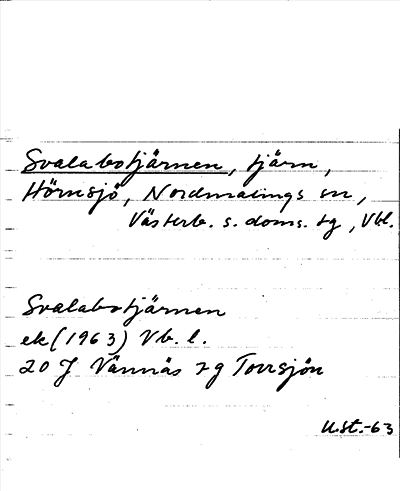 Svalabotjärnen, tjärn,
Hörnsjö, Nordmalings sn,
Västerb. s. doms. tg, Vbl.
Svalabotjärnen
ek (1963) Vb. l.
20 J Vännäs zg Torrsjön
U.st.-63